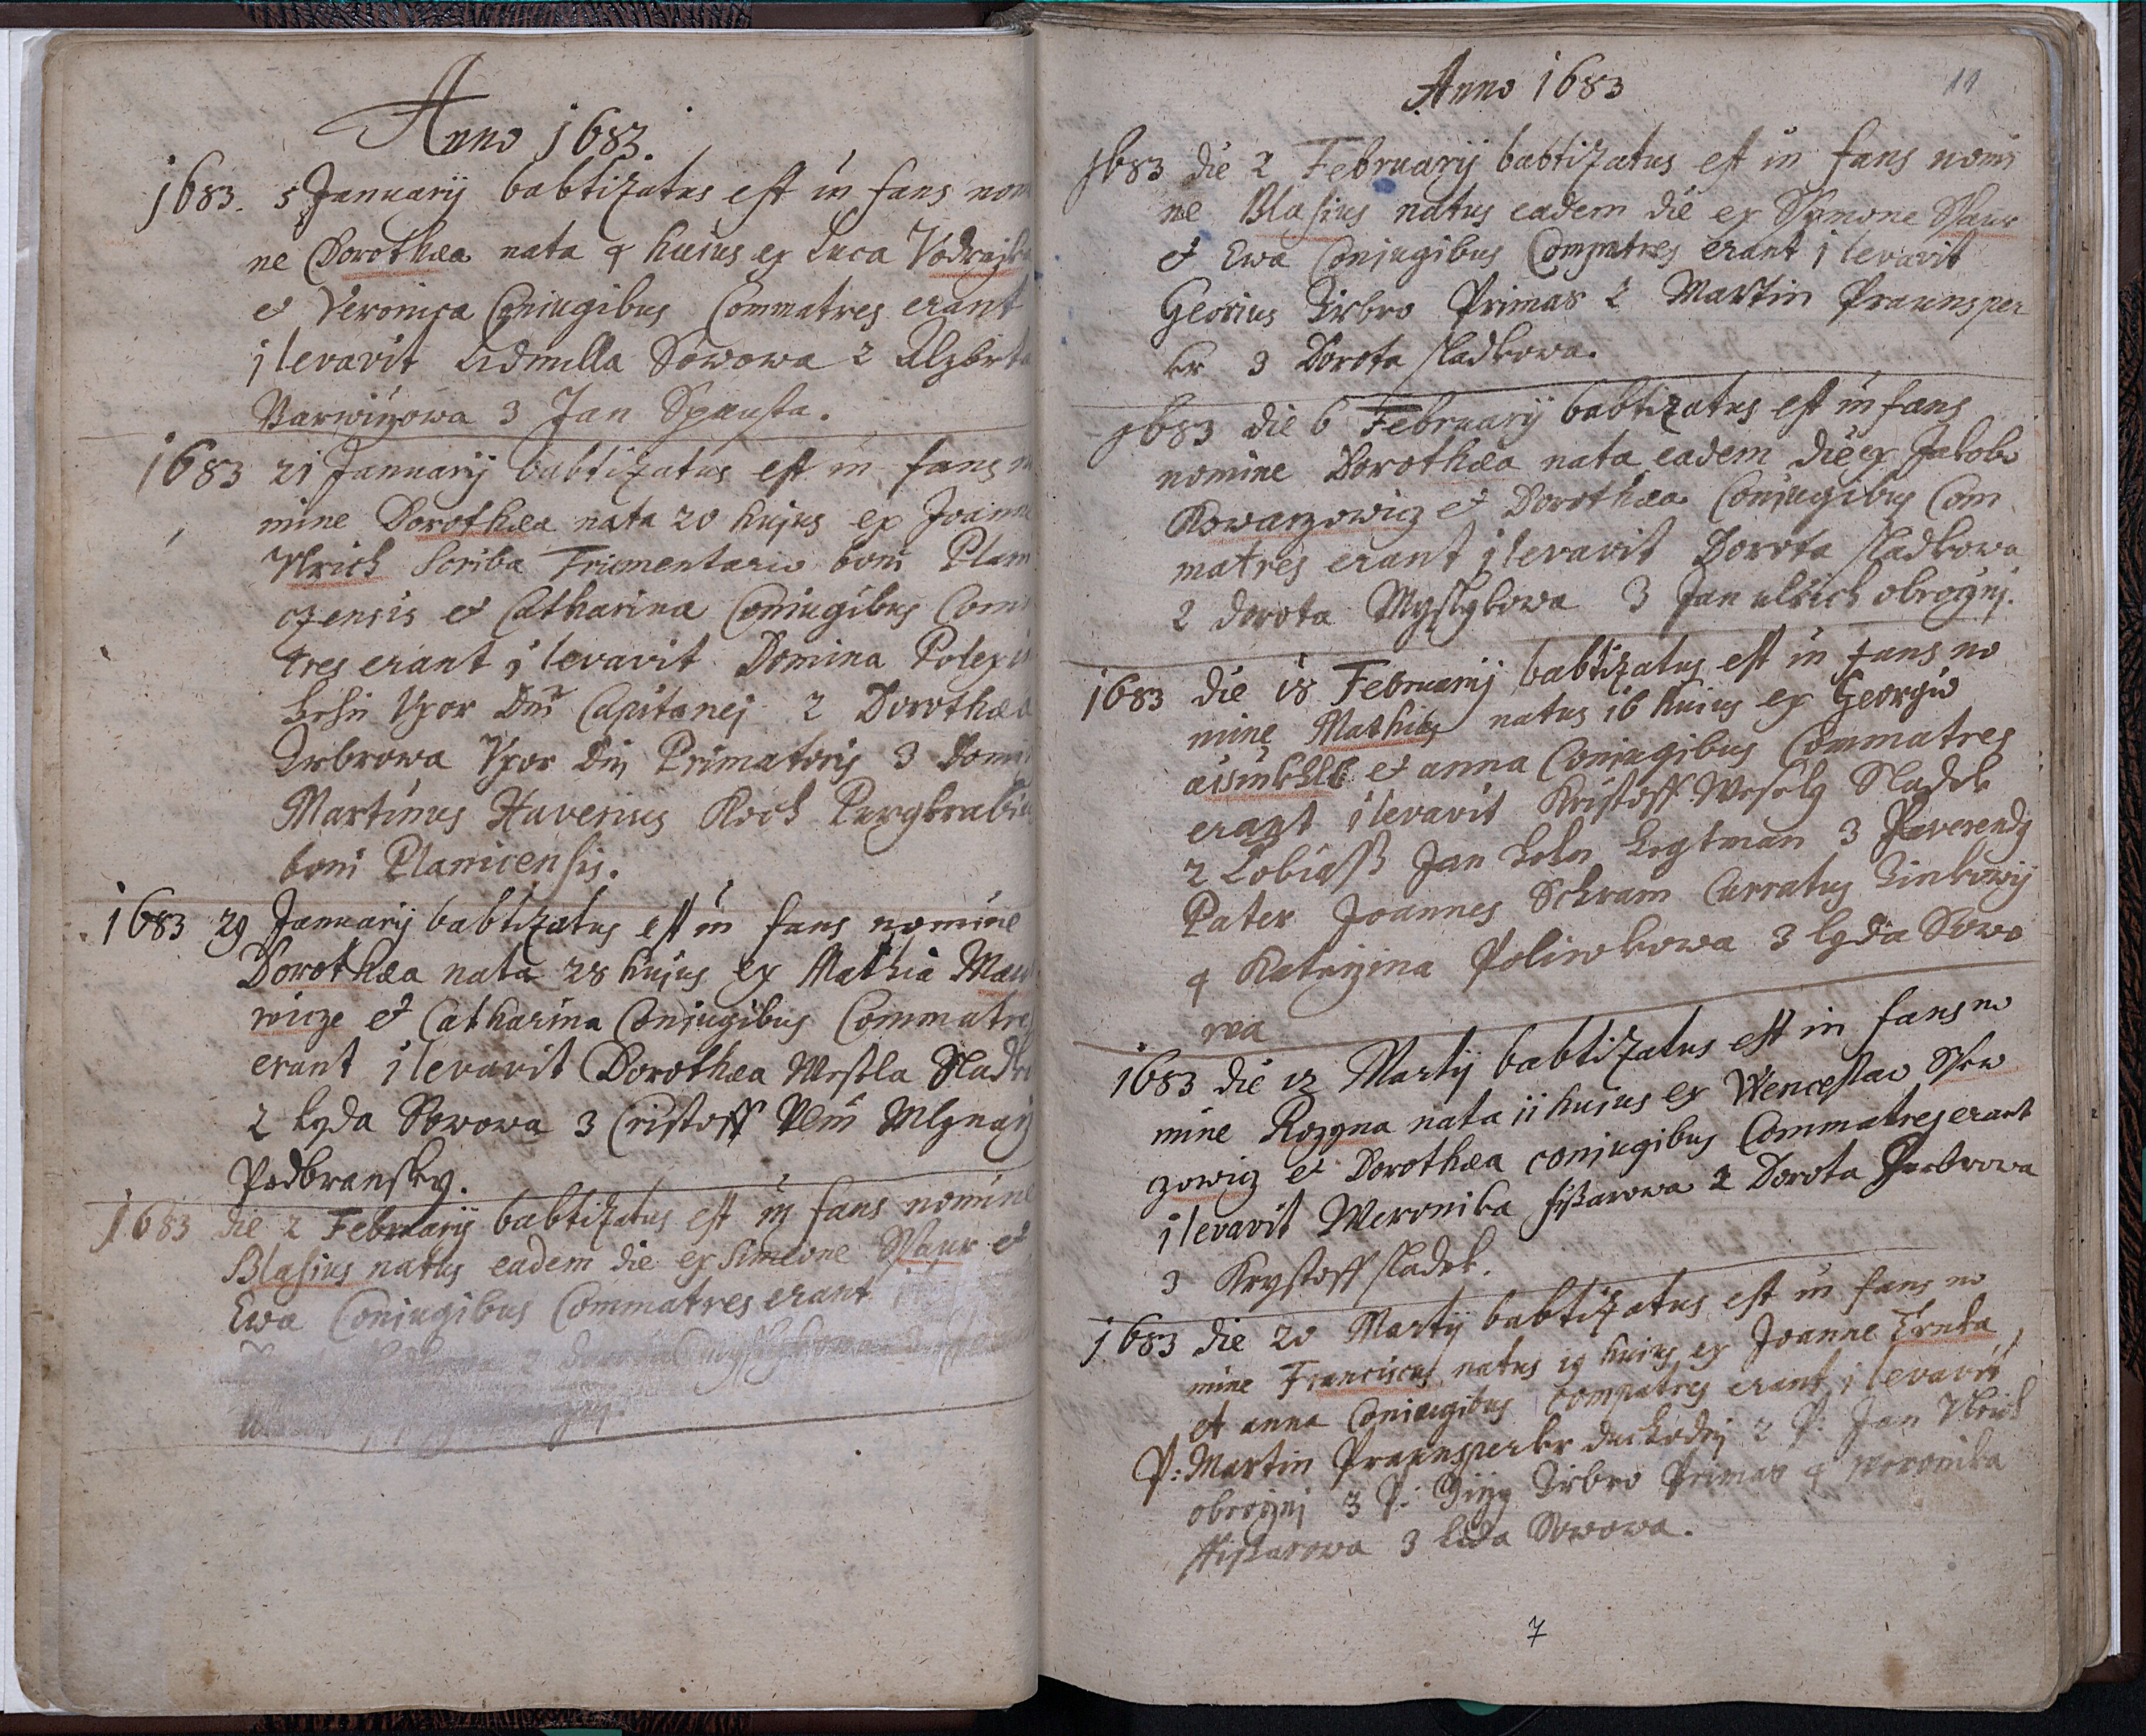 Anno 1683.
1683. 5 Januarij babtizatus est in fans nom
ne Dorothæa nata 4 huius ex Luca
et Veronica Coniugibus Commatres erant
1 levavit Ludmilla Sowowa 2 Alzbeta
3 Jan Spausta.
1683 21 Januarij babtizatus est in fans
mine Dorothæa nata 20 hujus ex Joanne
Vlrich Scriba Frumentario boni Plani
czensis et Catharina Coniugibus Com
tres erant 1 levavit Domina
Vxor Dni Capitanej 2 Dorothæa
Vxor Dni Primatoris 3
Martinus Haverius Koch Purgkrabi
boni Planicensis.
1683 29 Januarij babtizatus est in fans nomine
Dorothæa nata 28 hujus ex Mathia
et Catharina Coniugibus Commatre
erant 1 levavit Dorothæa Wesela Sladk
2 Lyda Sowowa 3 Cristoff Mlynarz
Podbransky.
1683 die 2 Februarij babtizatus est in fans nomine
Blasius natus eadem die ex Simeone et
Ewa Coniugibus Commatres erant
Anno 1683
11
1683 die 2 Februarij babtizatus est in fans nomi
ne Blasius natus eadem die ex Symone
et Ewa Coniugibus Compatres erant 1 levavit
Georius Primas 2 Martin Praunsper
kr 3 Dorota sladkowa.
1683 die 6 Februarij babtizatus est in fans
nomine Dorothæa nata eadem die ex Jakobo
Kowarzowicz et Dorothæa Coniugibus Com
matres erant 1 levavit Dorota sladkowa
2 dorota 3 Jan ulrich obrocznj.
1683 die 18 Februarij babtizatus est in fans no
mine Mathias natus 16 huius ex Georgio
et anna Coniugibus Commatres
erant 1 levavit Kristoff Wesely Sladek
2 Jan 3 Reverendy
Pater Joannes Schram Curratus
4 Katerzina Poliwkowa 3 Lyda Sowo
wa
1683 die 12 Martij babtizatus est in fans no
mine Rozyna nata 11 huius ex Wenceslao
czowicz et Dorothæa coniugibus Commatres erant
1 levavit Weronika fisarowa 2 Dorota
3 Krystoff sladek.
1683 die 20 Martij babtizatus est in fans no
mine Franciscus natus 19 huius ex Joanne Trnka
et anna Coniugibus compatres erant 1 levavit
P: Martin Praunsperkr duchodnj 2 P: Jan Vlrich
obrocznj 3 P: Girzy Primas 4 weronika
ffisarowa 3 Lida Sowowa.
7